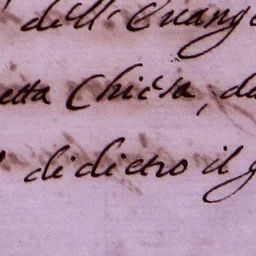 dell' Euange
etta Chiesa, da
di dietro il g